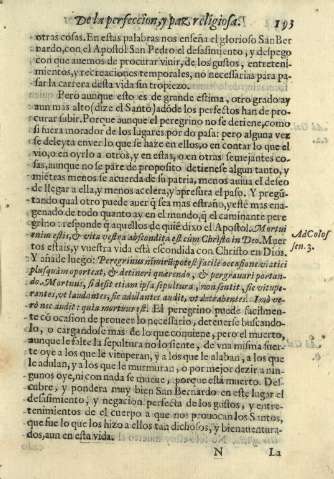 De la perfeccion, y paz religiosa. 193
otras cosas. En estas palabras nos enseña el glorioso San Ber
nardo, con el Apostol San Pedro el desasimiento, y despego
con que auemos de procurar viuir, de los gustos, entreteni-
mientos, y recreaciones temporales, no necessarias para pa-
sar la carrera desta vida sin tropiezo.
Però aunque esto es de grande estima, otro grado ay
aun mas alto (dize el Santo) adõde los perfectos han de pro-
curar subir. Porque aunque el peregrino no se detiene, como
si fuera morador de los lugares por do pasa: pero alguna vez
se deleyta en ver lo que se haze en ellos, o en contar lo que el
vio, o en oyrlo a otros, y en estas, o en otras semejantes co-
sas, aunque no se pare de proposito detienese algun tanto, y
miẽtras menos se acuerda de su patria, menos auiua el deseo
de llegar a ella, y menos acelera, y apresura el paso. Y pregũ-
tando qual otro puede auer q̃ sea mas estraño, y estè mas en-
agenado de todo quanto ay en el mundo, q̃ el caminante pere
grino: responde q̃ aquellos de quiẽ dixo el Apostol. Mortui
enim estis, & vita vestra abscondita est cum Christo in Deo. Muer
tos estais, y vuestra vida està escondida con Christo en Dios.
Y añade luego: Peregrinus nimirum potest facilè occasione viatici
plusquàm oportet, & detineri querendo, & pergrauari portan-
do. Mortuus, si desit etiam ipsa sepultura, non sentit, sic vitupe-
rantes, vt laudantes, sic adulantes audit, vt detrahentes. Imò ve-
rò nec audit: quia mortuus est. El peregrino puede facilmen-
te cõ ocasion de proueer lo necesario, detenerse buscando-
lo, o cargandose mas de lo que conuiene, pero el muerto,
aunque le falte la sepultura no lo siente, de vna misma suer-
te oye a los que le vituperan, y a los que le alaban, a los que
le adulan, y a los que le murmuran, o por mejor dezir a nin-
gunos oye, ni con nada se mueue, porque està muerto. Des-
cubre, y pondera muy bien San Bernardo en este lugar el
desasimiento, y negacion perfecta de los gustos, y entre-
tenimientos de el cuerpo a que nos prouocan los Santos,
que fue lo que los hizo a ellos tan dichosos, y bienauentura-
dos, aun en esta vida.
Ad Colos
sen. 3.
N La